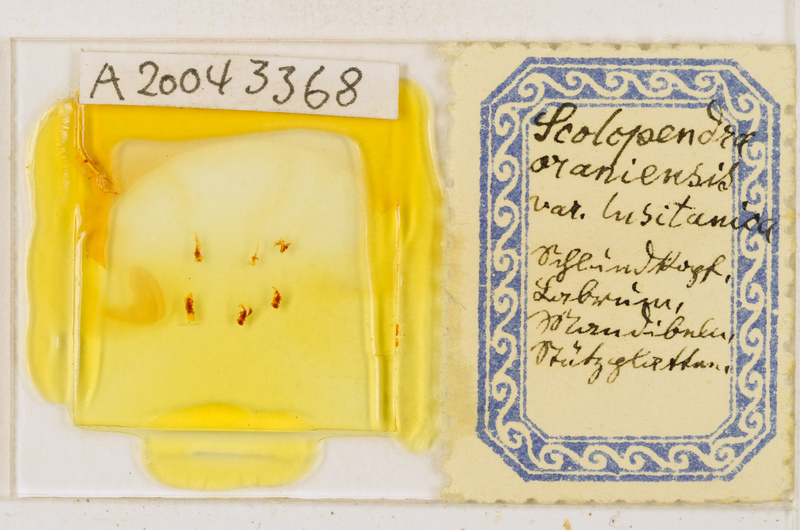 A20043368
Scolopendra
oraniensis
var. lusitanica
Schlundkopf,
Labrum,
Mandibeln,
Stützplatten.